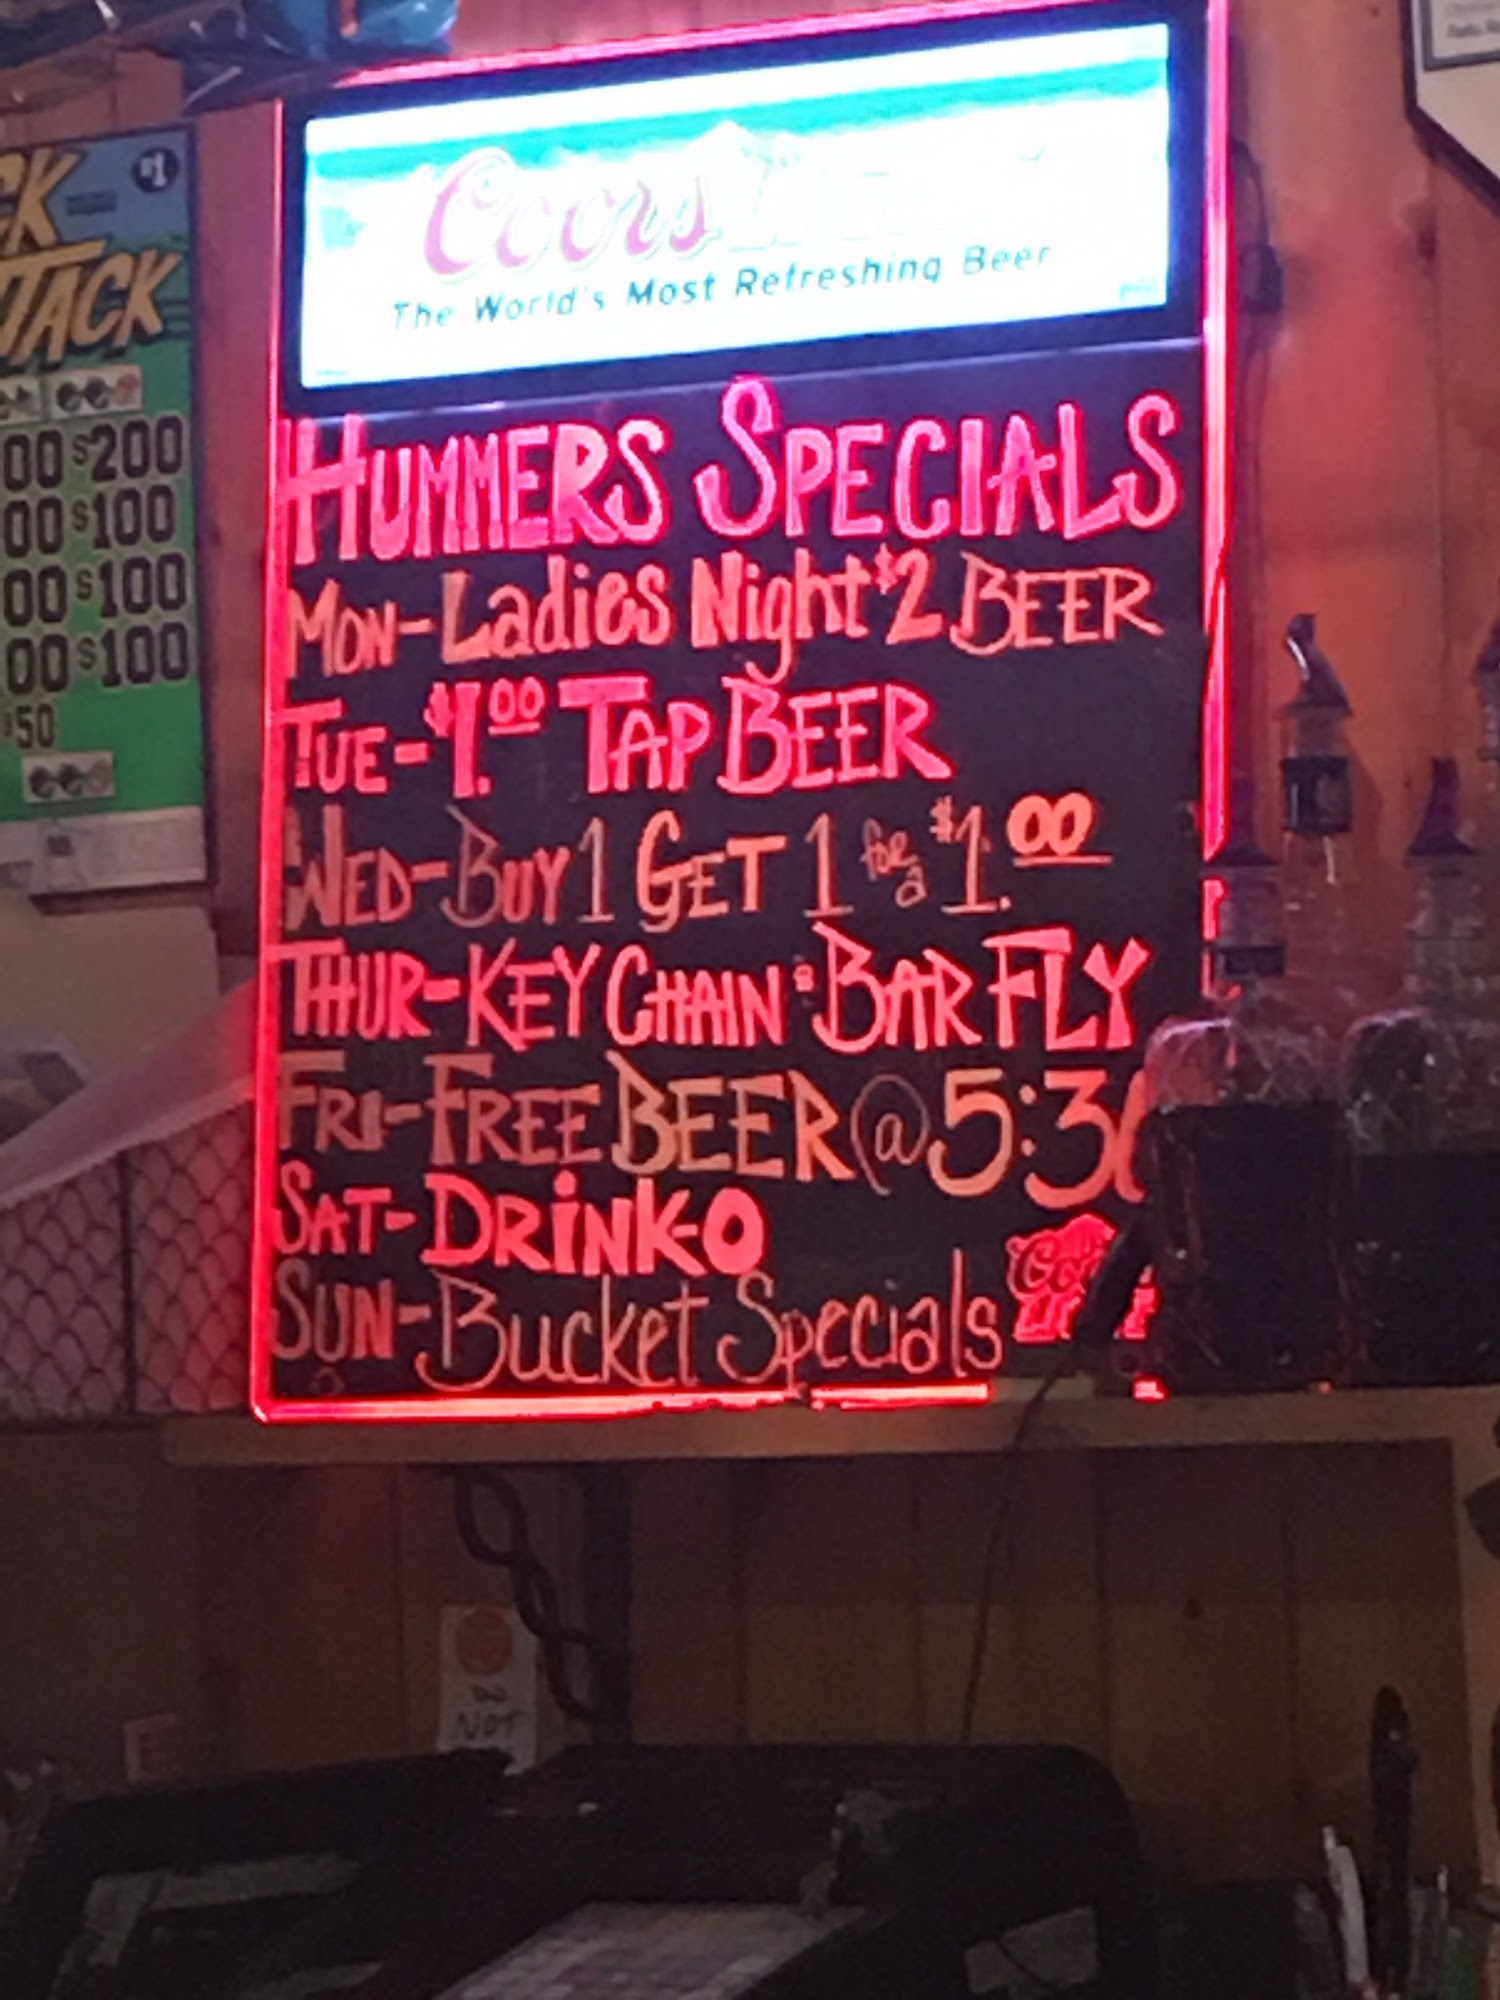 #1
CK
TTACK
00 $200
00 $100
00 $100
00 $100
$50
Coors
The World's Most Refreshing Beer
HUMMERS SPECIALS
MON-Ladies Night $2 BEER
TUE-$1.00 TAP BEER
WED-BUY 1 GET 1 for a $1.00
THUR-KEY CHAIN · BAR FLY
FRI-FREE BEER @ 5:30
SAT-DRINK-O
SUN-Bucket Specials
Coors
DO
NOT